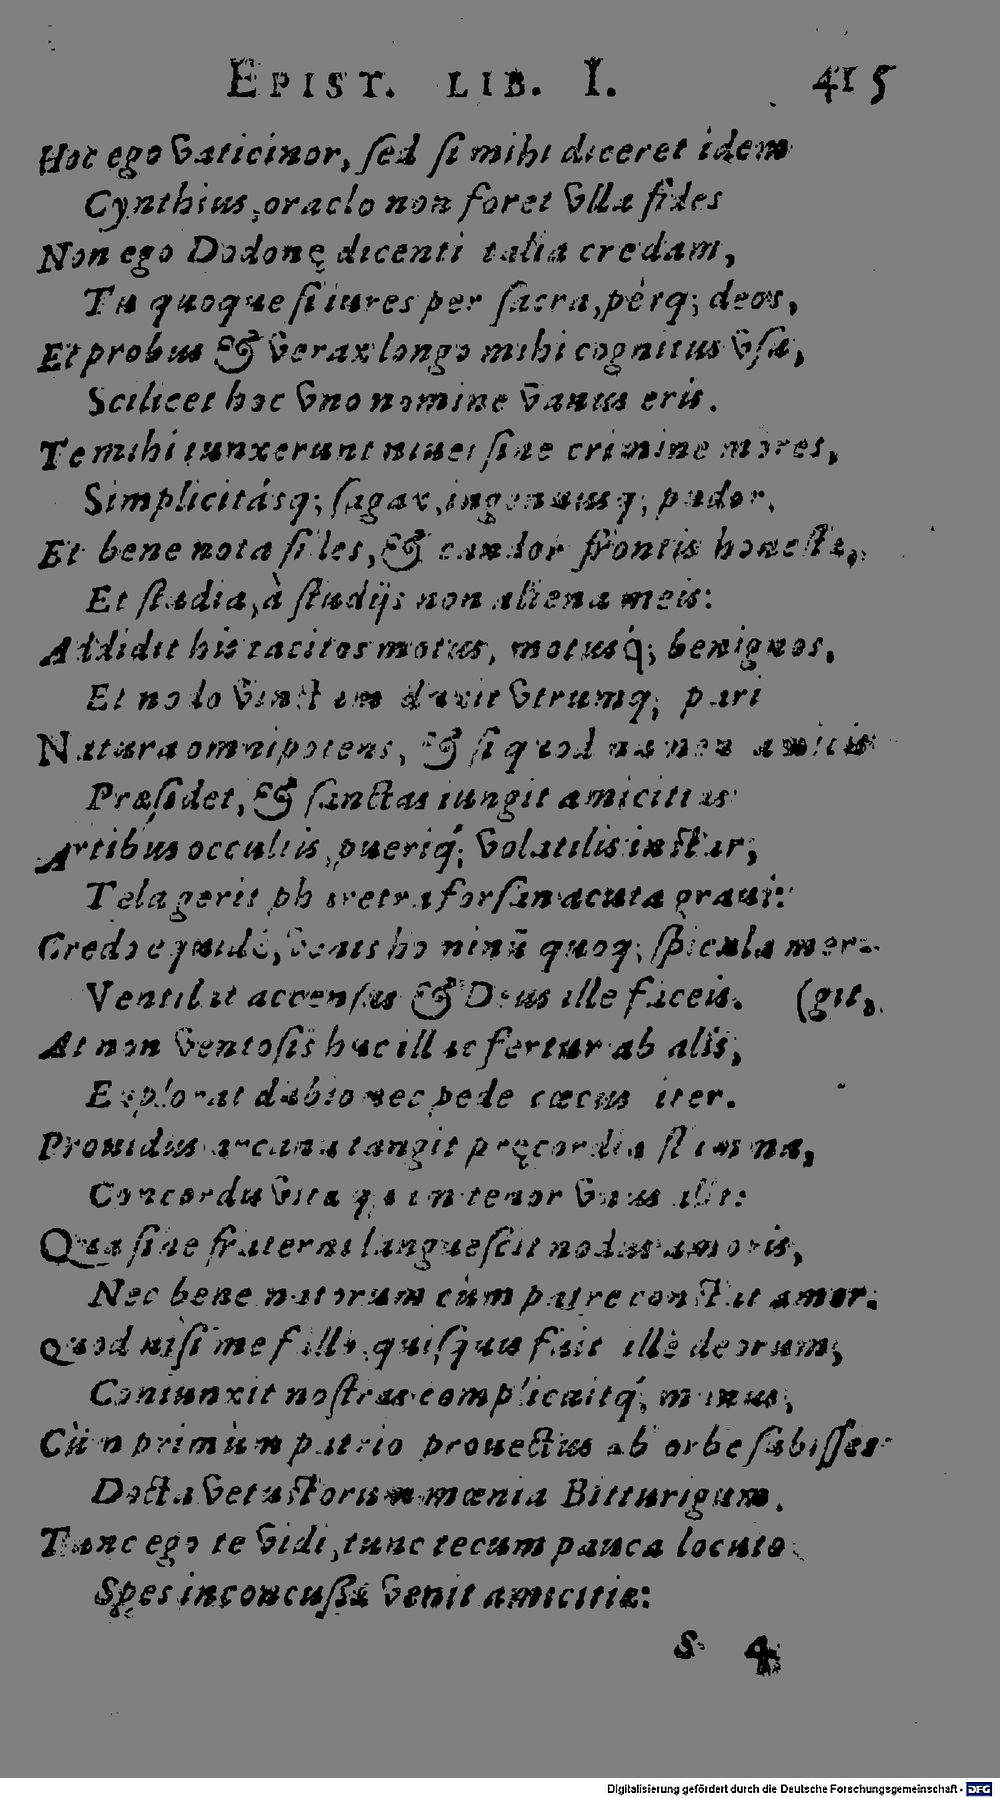 EPIST. LIB. I. 415
Hoc ego vaticinor, sed si mihi diceret idem
Cynthius, oraclo non foret vlla fides
Non ego Dodonę dicenti talia credam,
Tu quoque si iures per sacra, pérq; deos,
Et probus & verax longo mihi cognitus vsu,
Scilicet hoc vno nomine vanus eris.
Te mihi iunxerunt niuei sine crimine mores,
Simplicitásq; sagax, ingenuusq; pudor,
Et bene nota fides, & candor frontis honestæ,
Et studia, à studijs non aliena meis:
Addidit his tacitos motus, motusq́; benignos,
Et nodo vinctum duxit vtrumq; pari
Natura omnipotens, & si quod numen amicis
Præsidet, & sanctas iungit amicitias
Artibus occultis, pueriq́; volatilis instar,
Tela gerit pharetra forsan acuta graui:
Credo equidē, venis hominū quoq; spicula mer-
Ventilat accensas & Deus ille faceis. (git,
At non ventosis huc illuc fertur ab alis,
Explorat dubio nec pede cæcus iter.
Prouidus arcana tangit pręcordia flamma,
Concordi vita qua tenor vnus
Qua sine fraterni languescit nodus amoris,
Nec bene natorum cùm patre constat amor.
Quod nisi me fallo, quisquis fuit ille deorum,
Coniunxit nostras complicuitq́; manus,
Cùm primùm patrio prouectus ab orbe subisses
Docta vetustorum mœnia Bitturigum.
Tunc ego te vidi, tunc tecum pauca locuto
Spes inconcussæ venit amicitiæ:
S 4
Digitalisierung gefördert durch die Deutsche Forschungsgemeinschaft - DFG